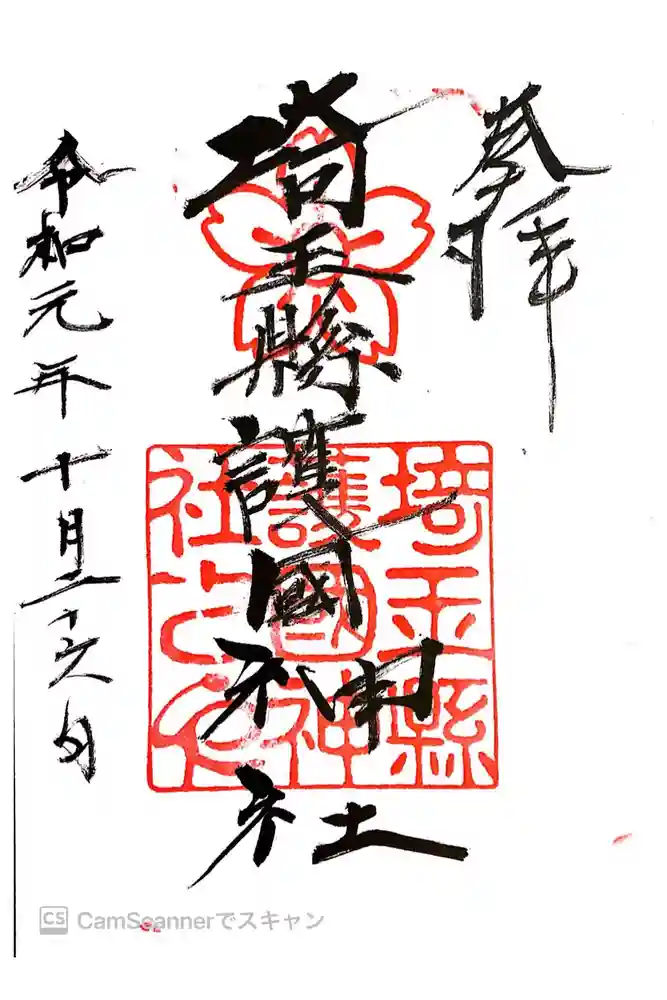 奉拝
埼玉縣護國神社
埼玉縣
護國神
社之印
令和元年十月二十六日
CS CamScannerでスキャン